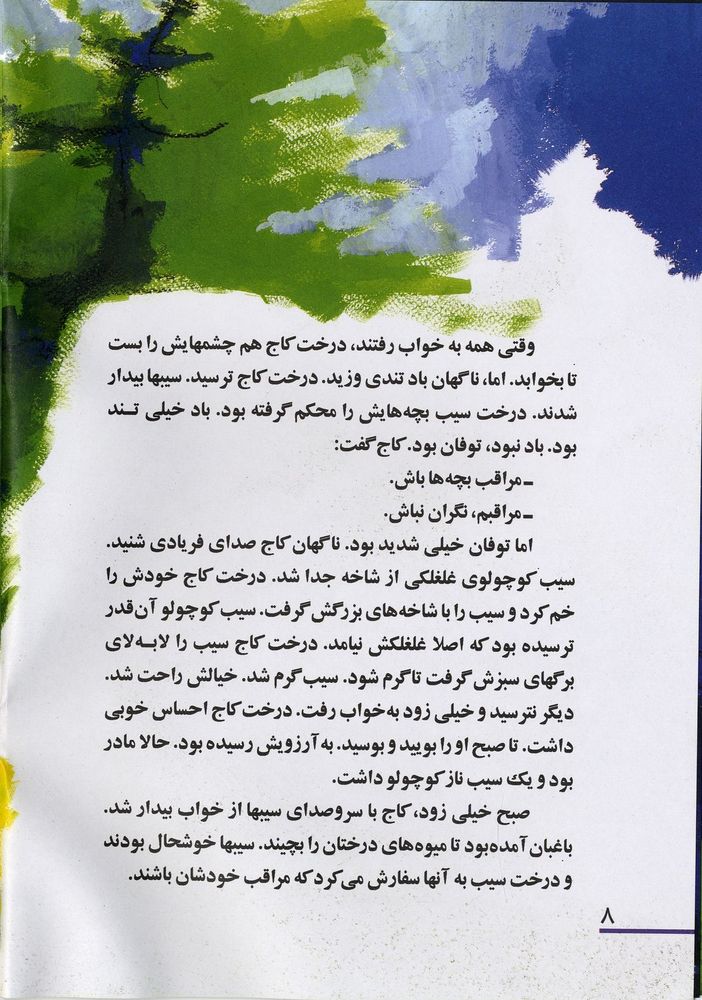 وقتی همه به خواب رفتند، درخت کاج هم چشمهایش را بست
تا بخوابد. اما، ناگهان باد تندی وزید. درخت کاج ترسید. سیبها بیدار
شدند. درخت سیب بچه‌هایش را محکم گرفته بود. باد خیلی تـند
بود. باد نبود، توفان بود. کاج گفت:
ـ مراقب بچه‌ها باش.
ـ مراقبم، نگران نباش.
اما توفان خیلی شدید بود. ناگهان کاج صدای فریادی شنید.
سیب کوچولوی غلغلکی از شاخه جدا شد. درخت کاج خودش را
خم کرد و سیب را با شاخه‌های بزرگش گرفت. سیب کوچولو آن‌قدر
ترسیده بود که اصلا غلغلکش نیامد. درخت کاج سیب را لابـه‌لای
برگهای سبزش گرفت تا گرم شود. سیب گرم شد. خیالش راحت شد.
دیگر نترسید و خیلی زود به‌خواب رفت. درخت کاج احساس خوبی
داشت. تا صبح او را بویید و بوسید. به آرزویش رسیده بود. حالا مادر
بود و یک سیب ناز کوچولو داشت.
صبح خیلی زود، کاج با سروصدای سیبها از خواب بیدار شد.
باغبان آمده‌بود تا میوه‌های درختان را بچیند. سیبها خوشحال بودند
و درخت سیب به آنها سفارش می‌کرد که مراقب خودشان باشند.
۸